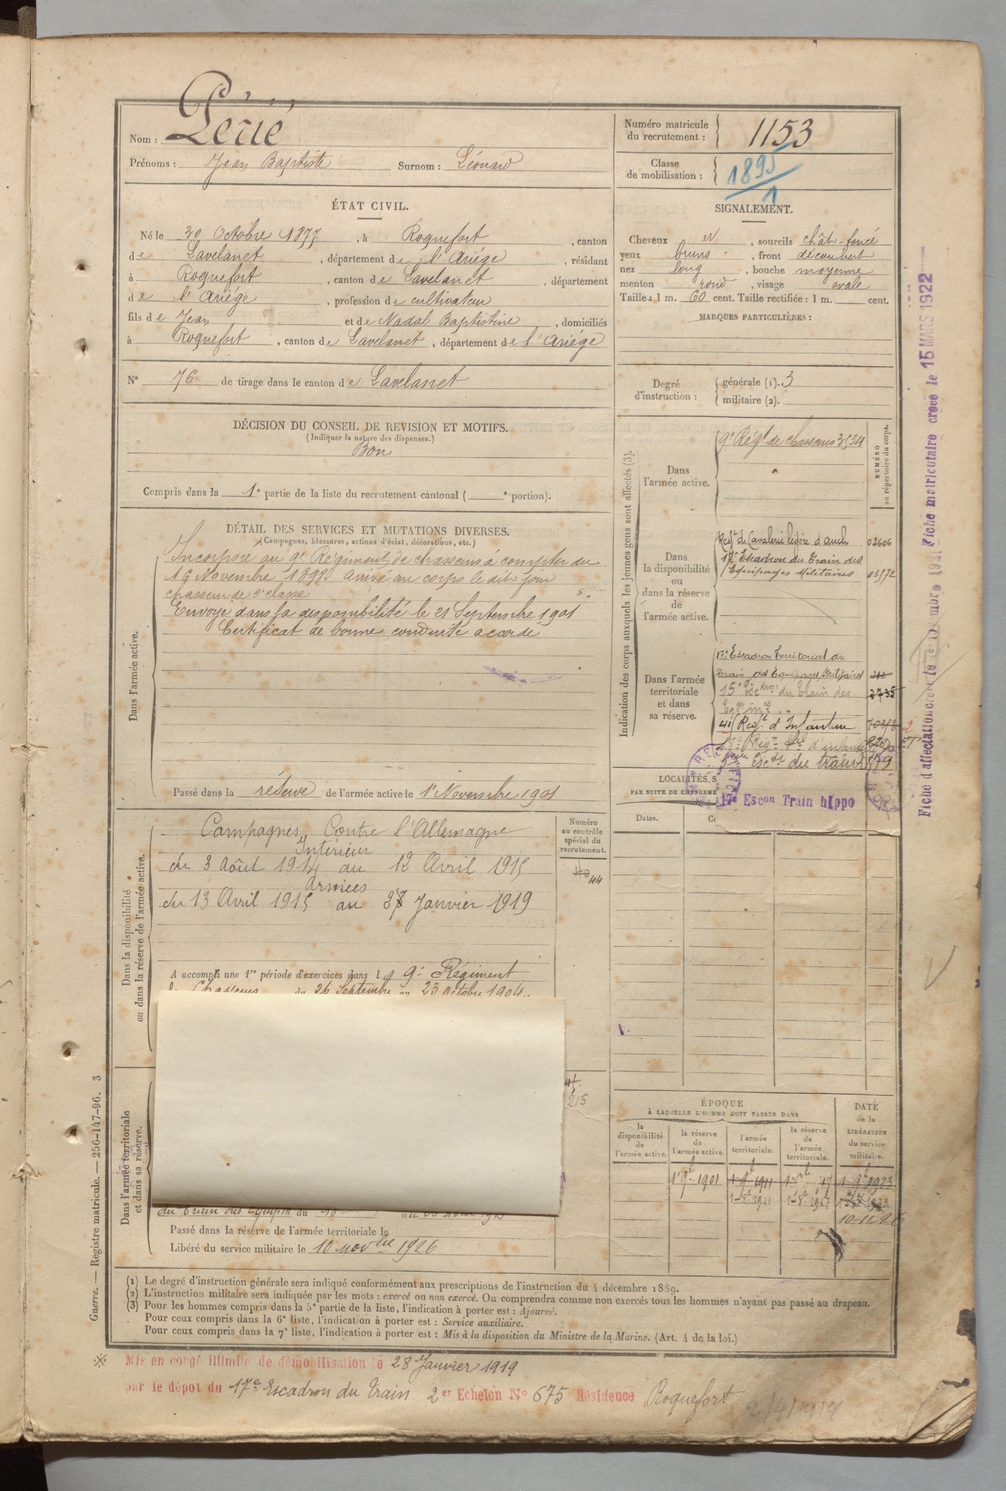 Nom : Périé
Prénoms : Jean Baptiste Surnom : Léonard
Numéro matricule du recrutement : 1153
Classe de mobilisation : 1895
1
ÉTAT CIVIL.
Né le 30 Octobre 1877, à Roquefort, canton
de Lavelanet, département de l'Ariège, résidant
à Roquefort, canton de Lavelanet, département
de l'Ariège, profession de cultivateur
fils de Jean et de Nadal Baptistine, domiciliés
à Roquefort, canton de Lavelanet, département de l'Ariège
N° 76 de tirage dans le canton de Lavelanet
SIGNALEMENT.
Cheveux et, sourcils chât. foncé
yeux bruns, front découvert
nez long, bouche moyenne
menton rond, visage ovale
Taille : 1 m. 60 cent. Taille rectifiée : 1 m. cent.
MARQUES PARTICULIÈRES :
Degré d'instruction : générale (1). 3
militaire (2).
DÉCISION DU CONSEIL DE REVISION ET MOTIFS.
(Indiquer la nature des dispenses.)
Bon
Compris dans la 1e partie de la liste du recrutement cantonal ( e portion).
DÉTAIL DES SERVICES ET MUTATIONS DIVERSES.
(Campagnes, blessures, actions d'éclat, décorations, etc.)
Dans l'armée active.
Incorporé au 9e Régiment de chasseurs à compter du
16 Novembre 1898 arrivé au corps le dit jour
chasseur de 2e classe
Envoyé dans la disponibilité le 21 Septembre 1901
Certificat de bonne conduite accordé
Passé dans la réserve de l'armée active le 1er Novembre 1901
Indication des corps auxquels les jeunes gens sont affectés (3).
NUMÉRO au répertoire du corps.
Dans l'armée active.
9e Régt de chasseurs 3534
Dans la disponibilité ou dans la réserve de l'armée active.
Régt de Cavalerie légère d'Auch 02606
17e Escadron du Train des
Équipages Militaires 05172
Dans l'armée territoriale et dans sa réserve.
17e Escadron territorial du
train des Équipages Militaires
15e Escon du train des
2735
Régt d'Infanterie
Escon du train 879
LOCALITÉS S
PAR SUITE DE CHANGEME
17e Escon Train hippo
Dates.
Dans la disponibilité ou dans la réserve de l'armée active.
Numéro au contrôle spécial du recrutement.
44
Campagnes Contre l'Allemagne
Intérieur
du 3 Août 1914 au 12 Avril 1915
Armées
du 13 Avril 1915 au 27 Janvier 1919
A accompli une 1re période d'exercices dans le 9e Régiment
de Chasseurs du 26 Septembre au 23 Octobre 1904.
Dans l'armée territoriale et dans sa réserve.
215
du Train des Équip.
Passé dans la réserve de l'armée territoriale le
Libéré du service militaire le 10 novbre 1926
ÉPOQUE
À LAQUELLE L'HOMME DOIT PASSER DANS
la disponibilité de l'armée active.
la réserve de l'armée active.
l'armée territoriale.
la réserve de l'armée territoriale.
DATE de la LIBÉRATION du service militaire.
1er 9bre 1901
(1) Le degré d'instruction générale sera indiqué conformément aux prescriptions de l'instruction du 4 décembre 1889.
(2) L'instruction militaire sera indiquée par les mots : exercé ou non exercé. On comprendra comme non exercés tous les hommes n'ayant pas passé au drapeau.
(3) Pour les hommes compris dans la 5e partie de la liste, l'indication à porter est : Ajourné.
Pour ceux compris dans la 6e liste, l'indication à porter est : Service auxiliaire.
Pour ceux compris dans la 7e liste, l'indication à porter est : Mis à la disposition du Ministre de la Marine. (Art. 4 de la loi.)
Mis en congé illimité de démobilisation le 28 Janvier 1919
par le dépôt du 17e Escadron du Train 2er Echelon N° 675 Résidence Roquefort
Guerre. — Registre matricule. — 256-147-96. 3
Fiche matriculaire créée le 15 MARS 1922